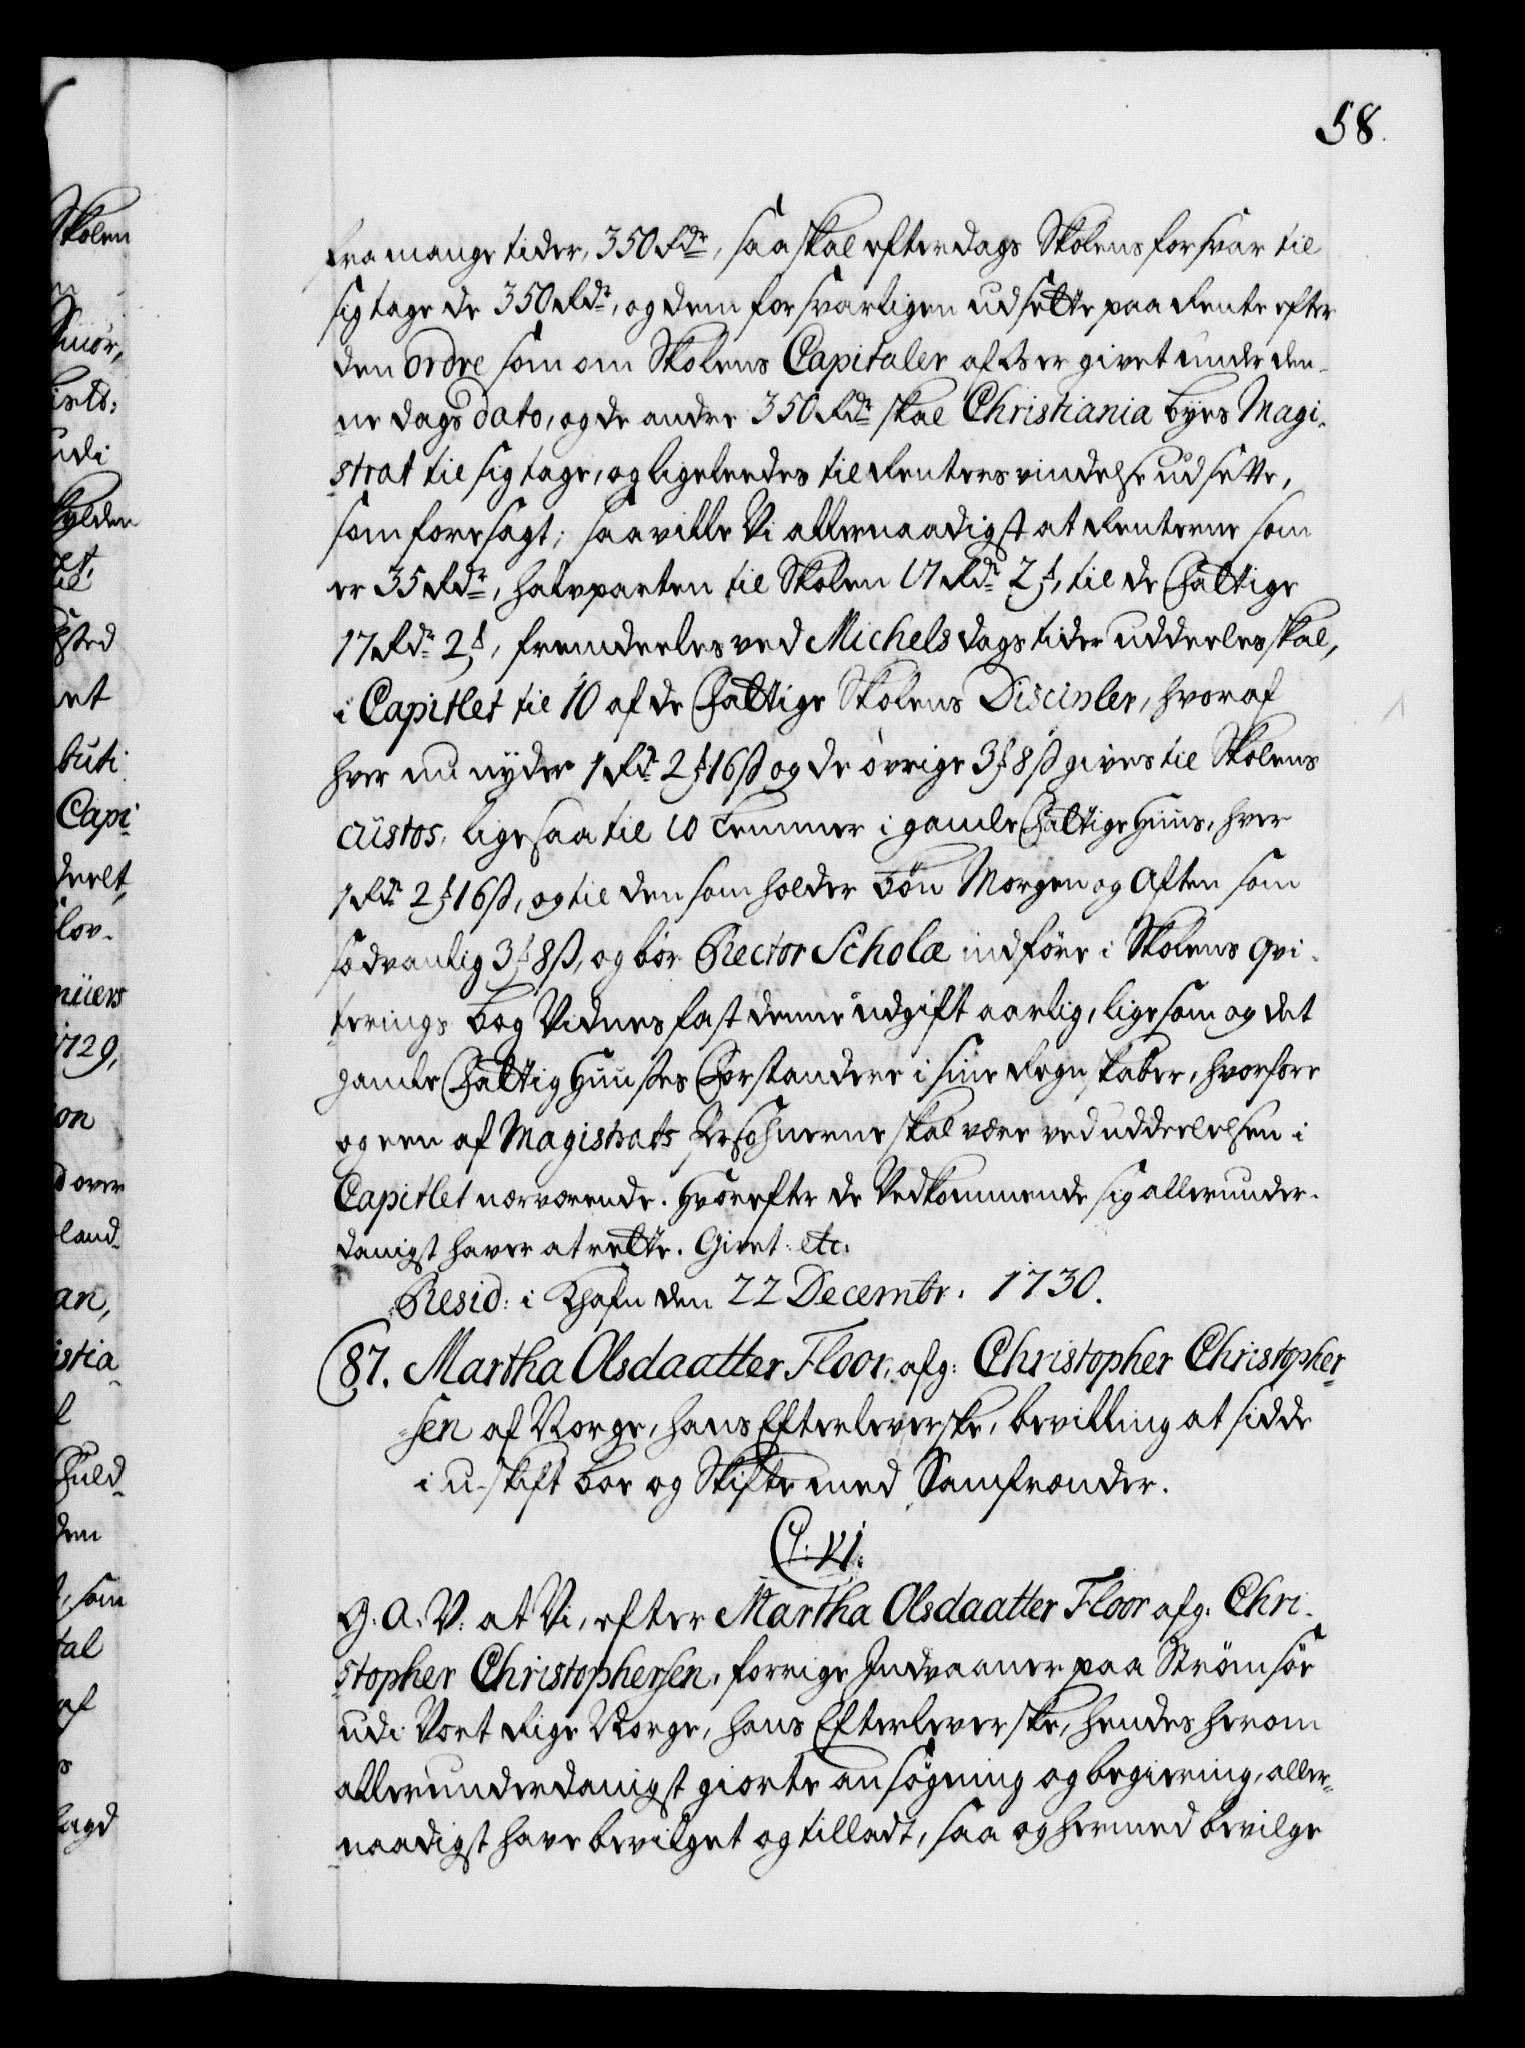 58.
fra mange tider, 350 Rdr, saa skal efterdags Skolens forsvar til
sig tage de 350 Rdr, og dem forsvarligen udsette paa Rente efter
den ordre som om Skolens Capitaler af Os er givet under den-
ne dags dato, og de andre 350 Rdr skal Christiania byes Magi-
strat til sig tage, og ligeleedes til Renters vindelse udsette,
som foresagt; saa ville Vi allernaadigst at Renterne som
er 35 Rdr, halvparten til Skolen 17 Rdr 2 ₰, til de Fattige
17 Rdr 2 ₰, fremdeeles ved Michels dags tider uddeeles skal,
i Capitlet til 10 af de Fattige Skolens Discipler, hvoraf
hver nu nyder 1 Rdr 2 ₰ 16 ß og de øvrige 3 ₰ 8 ß gives til Skolens
custos, ligesaa til 10 Lemmer i gamle Fattige Huus, hver
1 Rdr 2 ₰ 16 ß, og til den som holder Bøn Morgen og Aften som
sædvanlig 3 ₰ 8 ß, og bør Rector Scholæ indføre i Skolens qvi-
terings bog Vidnesfast denne udgift aarlig, ligesom og det
gamle Fattig Huuses Forstandere i sine Regnskaber, hvorfore
og een af Magistrats Persohnerne skal være ved uddeelelsen i
Capitlet nærværende. Hvorefter de Vedkommende sig allerunder-
danigst haver at rette. Givet: etc:
Resid: i Khafn den 22 Decembr. 1730.
87. Martha Olsdaatter Floor, afg: Christopher Christopher-
sen af Norge, hans Efterleverske, bevilling at sidde
i u-skift boe og Skifte med Samfrænder.
C. VI.
G. A. V. at Vi, efter Martha Olsdaatter Floor afg. Chri-
stopher Christophersen, forrige Indvaaner paa Strømsøe
udi Vort Rige Norge, hans Efterleverske, hendes herom
allerunderdanigst giorte ansøgning og begiering, aller-
naadigst have bevilget og tilladt, saa og hermed bevilge